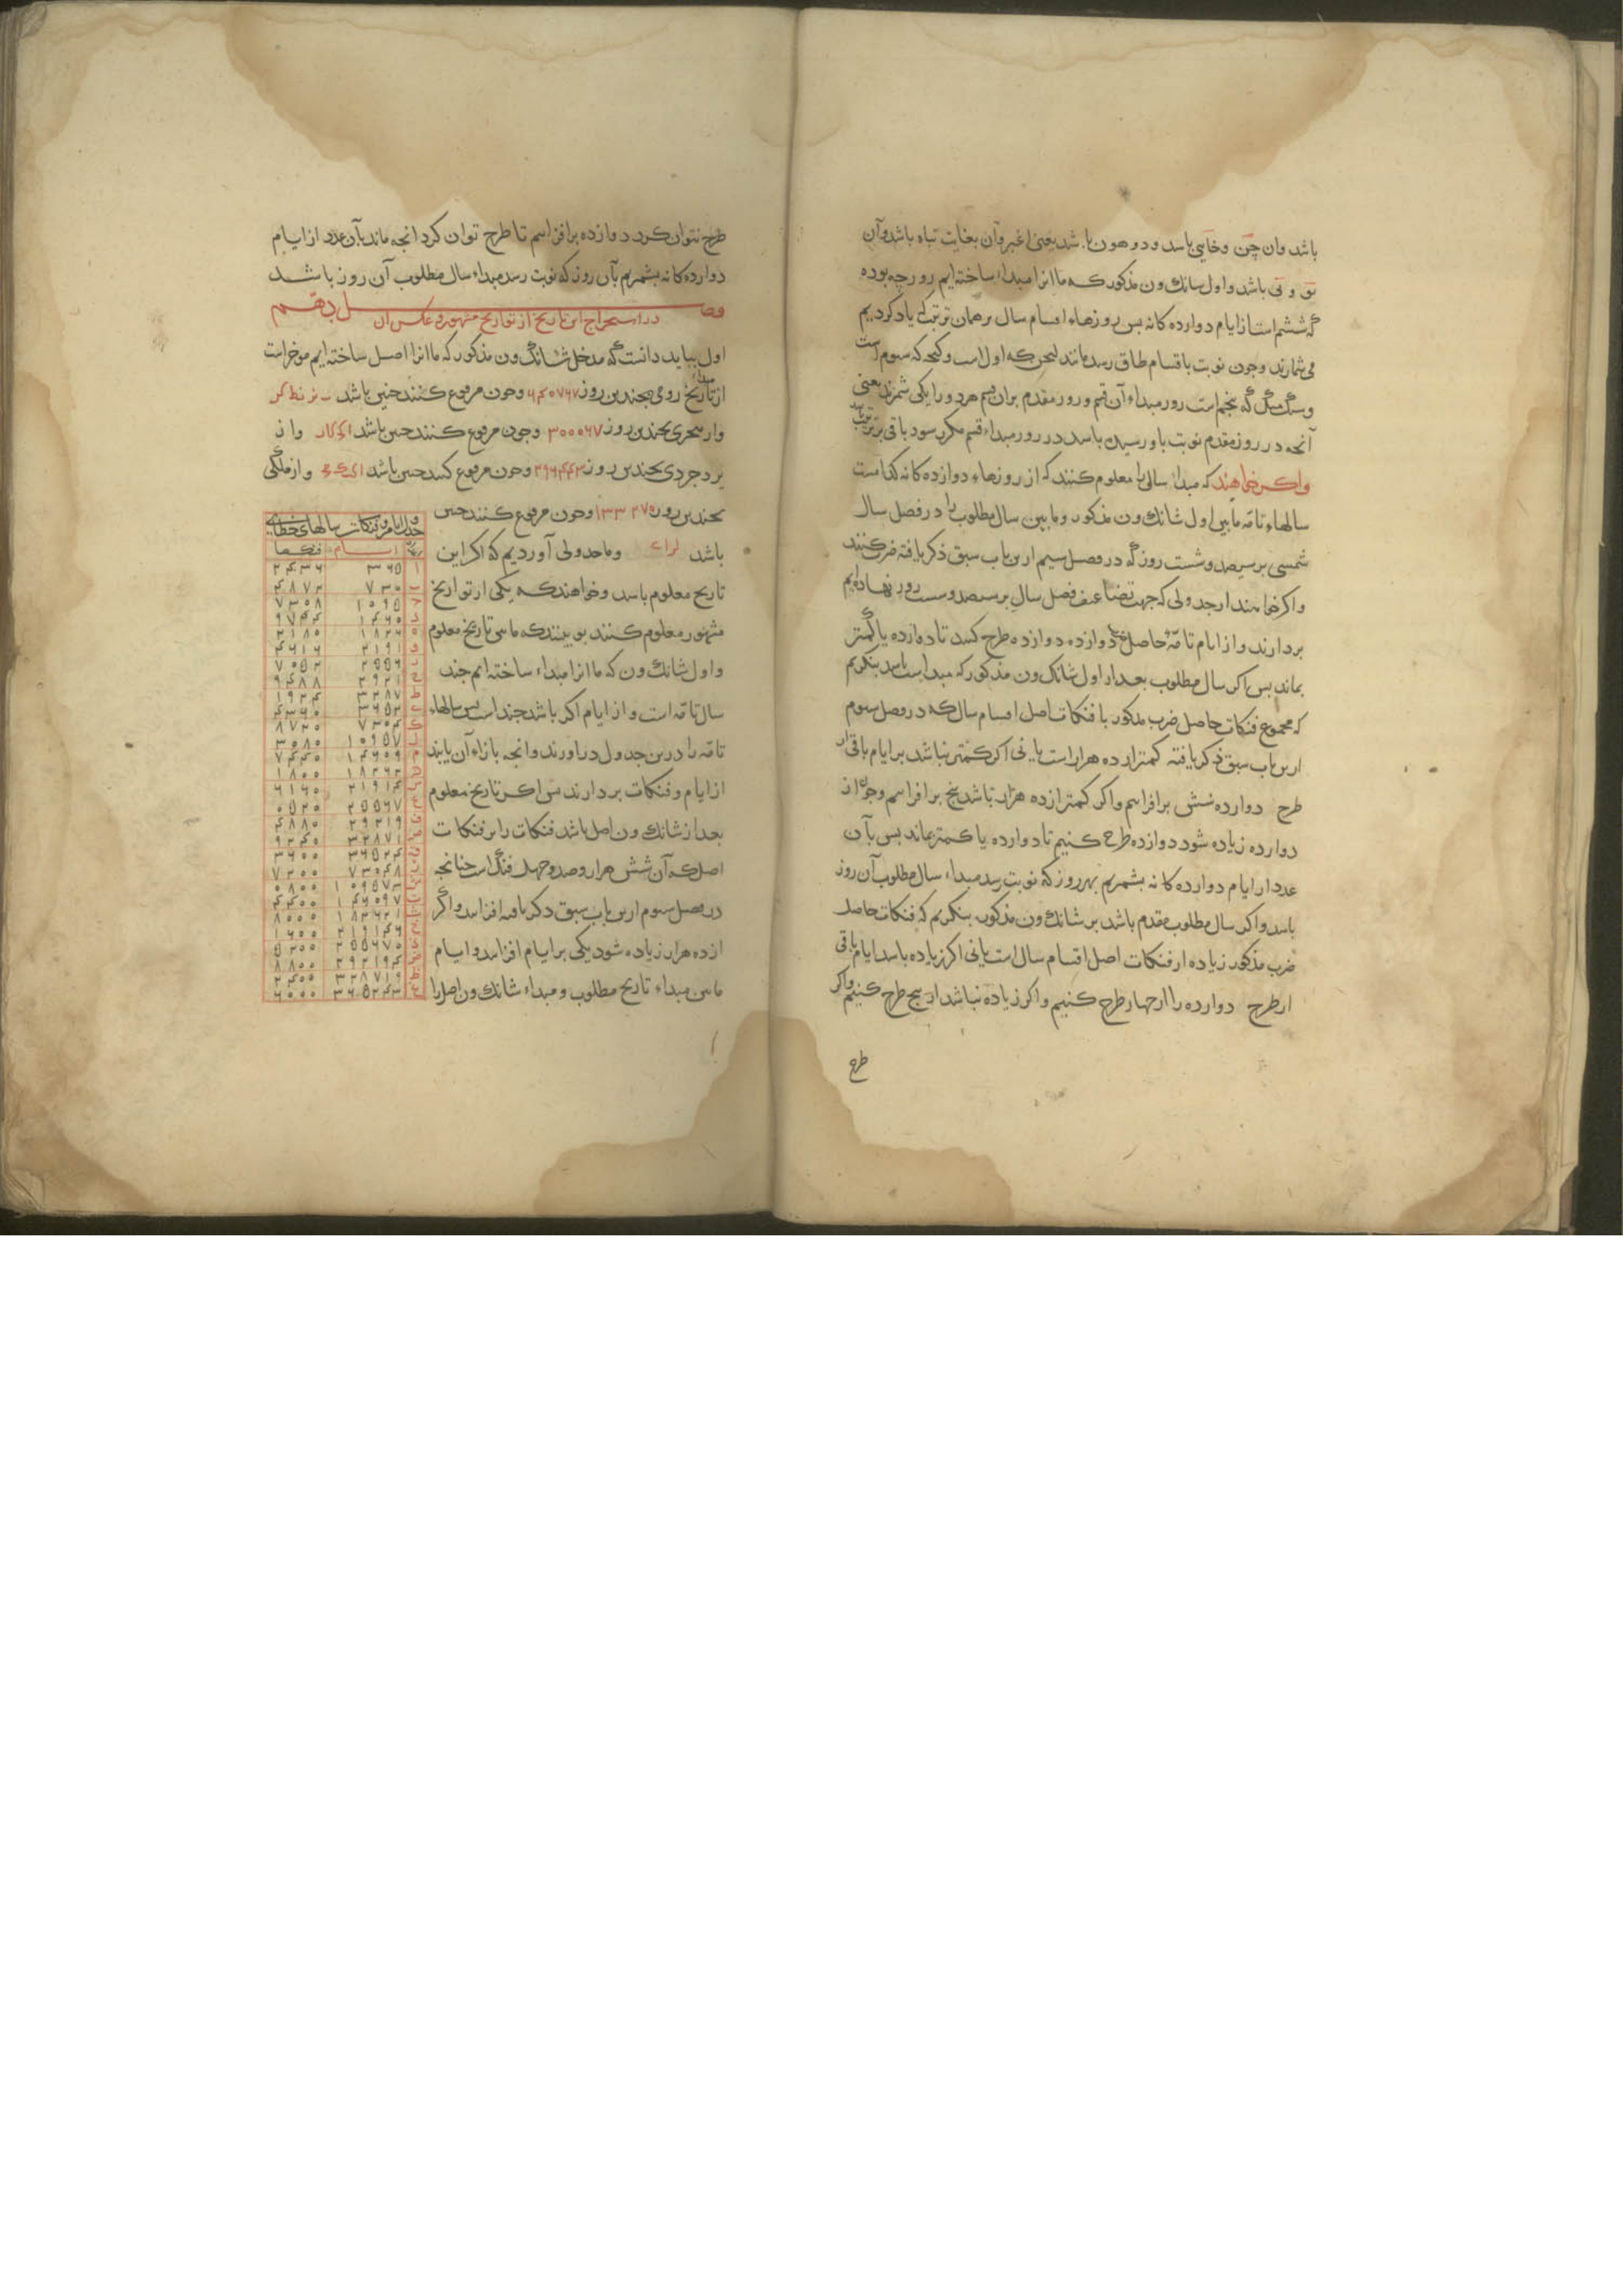 باشد وان چن وخایی باسد ودو هون با شد یعنی اغبر وآن بغایت تباه باشد وآن
تو و تی باشد واول سانك ون مذکور که ما انرا مبداء ساخته ایم روز چه بوده
که ششم است از ایام دوازده کانه بس روزهاء اقسام سال برهمان ترتیب که یاد کردیم
می شمارند وجون نوبت باقسام طاق رسد مانند لیچن که اول است وکیجه که سوم است
وسنگ منگ که پنجم است روز مبداء آن قسم و روز مقدم بران قسم هر دو را یکی شمرند یعنی
آنجه در روز مقدم نوبت باو رسیده باسد در روز مبداء قسم مکرر سود باقی بر ترتیب
واکر خواهند که مبداء سالی را معلوم کنند که از روزهاء دوازده کانه کدامست
سالهاء تامه ما بین اول شانك ون مذکور وما بین سال مطلوب را در فصل سال
شمسی بر سیصد وشست روز که در فصل سیم ازین باب سبق ذکر یافته ضرب کنند
واکر خواهند از جدولی که جهت تضاعیف فصل سال بر سیصد وشست روز نهاده ایم
بردارند واز ایام تامه حاصل دوازده دوازده طرح کنند تا دوازده یا کمتر
بماند بس اکر سال مطلوب بعد از اول شانك ون مذکور که مبداست باسد بنکریم
که مجموع فنکات حاصل ضرب مذکور با فنکات اصل اقسام سال که در فصل سوم
ازین باب سبق ذکر یافته کمتر از ده هزار است یا نی اکر کمتر نباشد بر ایام باقی از
طرح دوازده شش برافزاییم واکر کمتر از ده هزار باشد پنج برافزاییم وجون از
دوازده زیاده شود دوازده طرح کنیم تا دوازده یا کمتر بماند بس بآن
عدد از ایام دوازده کانه بشمریم بهر روز که نوبت رسد مبداء سال مطلوب آن روز
باسد واکر سال مطلوب مقدم باشد بر شانك ون مذکور بنکریم که فنکات حاصل
ضرب مذکور زیاده از فنکات اصل اقسام سال است یا نی اکر زیاده باسد ایام باقی
از طرح دوازده را از چهار طرح کنیم واکر زیاده نباشد از پنج طرح کنیم واکر
طرح
طرح نتوان کرد دوازده برافزاییم تا طرح توان کرد انجه ماند بآن عدد از ایام
دوازده کانه بشمریم بآن روز که نوبت رسد مبداء سال مطلوب آن روز باشد
فصل دهم
در استخراج این تاریخ از تواریخ مشهوره وعکس آن
اول بباید دانست که مدخل شانك ون مذکور که ما انرا اصل ساخته ایم موخر است
از تاریخ رومی بچندین روز ۶۴۰۷۶۷ وچون مرفوع کنند چنین باشد
واز هجری بچندین روز ۳۰۰۰۶۷ وچون مرفوع کنند چنین باشد واز
یزدجردی بچندین روز ۲۹۶۴۴۳ وچون مرفوع کنند چنین باشد واز ملکی
بچندین روز ۱۳۳۲۷۵ وچون مرفوع کنند چنین
باشد وما جدولی آوردیم که اکر این
تاریخ معلوم باسد وخواهند که یکی از تواریخ
مشهور معلوم کنند بو بینند که مابین تاریخ معلوم
واول شانك ون که ما انرا مبداء ساخته ایم چند
سال تامه است واز ایام اکر باشد چند است پس سالهاء
تامه را درین جدول دراورند وانجه بازاء آن یابند
از ایام وفنکات بردارند پس اکر تاریخ معلوم
بعد از شانك ون اصل باشد فنکات را بر فنکات
اصل که آن شش هزار وصد وچهل فنك است چنانجه
در فصل سوم ازین باب سبق ذکر یافته افزایند واکر
از ده هزار زیاده شود یکی بر ایام افزایند وایام
مابین مبداء تاریخ مطلوب ومبداء شانك ون اصل را
جدول ایام وفنکات سالهای خطایی
ایام فنکها
ا ۳۶۵ ۲۴۳۶
ب ۷۳۰ ۴۸۷۲
ج ۱۰۹۵ ۷۳۰۸
د ۱۴۶۰ ۹۷۴۴
ه ۱۸۲۶ ۲۱۸۰
و ۲۱۹۱ ۴۶۱۶
ز ۲۵۵۶ ۷۰۵۲
ح ۲۹۲۱ ۹۴۸۸
ط ۳۲۸۷ ۱۹۲۴
ی ۳۶۵۲ ۴۳۶۰
ک ۷۳۰۴ ۸۷۲۰
ل ۱۰۹۵۷ ۳۰۸۰
م ۱۴۶۰۹ ۷۴۴۰
ن ۱۸۲۶۲ ۱۸۰۰
س ۲۱۹۱۴ ۶۱۶۰
ع ۲۵۵۶۷ ۰۵۲۰
ف ۲۹۲۱۹ ۴۸۸۰
ص ۳۲۸۷۱ ۹۲۴۰
ق ۳۶۵۲۴ ۳۶۰۰
ر ۷۳۰۴۸ ۷۲۰۰
ش ۱۰۹۵۷۳ ۰۸۰۰
ت ۱۴۶۰۹۷ ۴۴۰۰
ث ۱۸۲۶۲۱ ۸۰۰۰
خ ۲۱۹۱۴۶ ۱۶۰۰
ذ ۲۵۵۶۷۰ ۵۲۰۰
ض ۲۹۲۱۹۴ ۸۸۰۰
ظ ۳۲۸۷۱۹ ۲۴۰۰
غ ۳۶۵۲۴۳ ۶۰۰۰